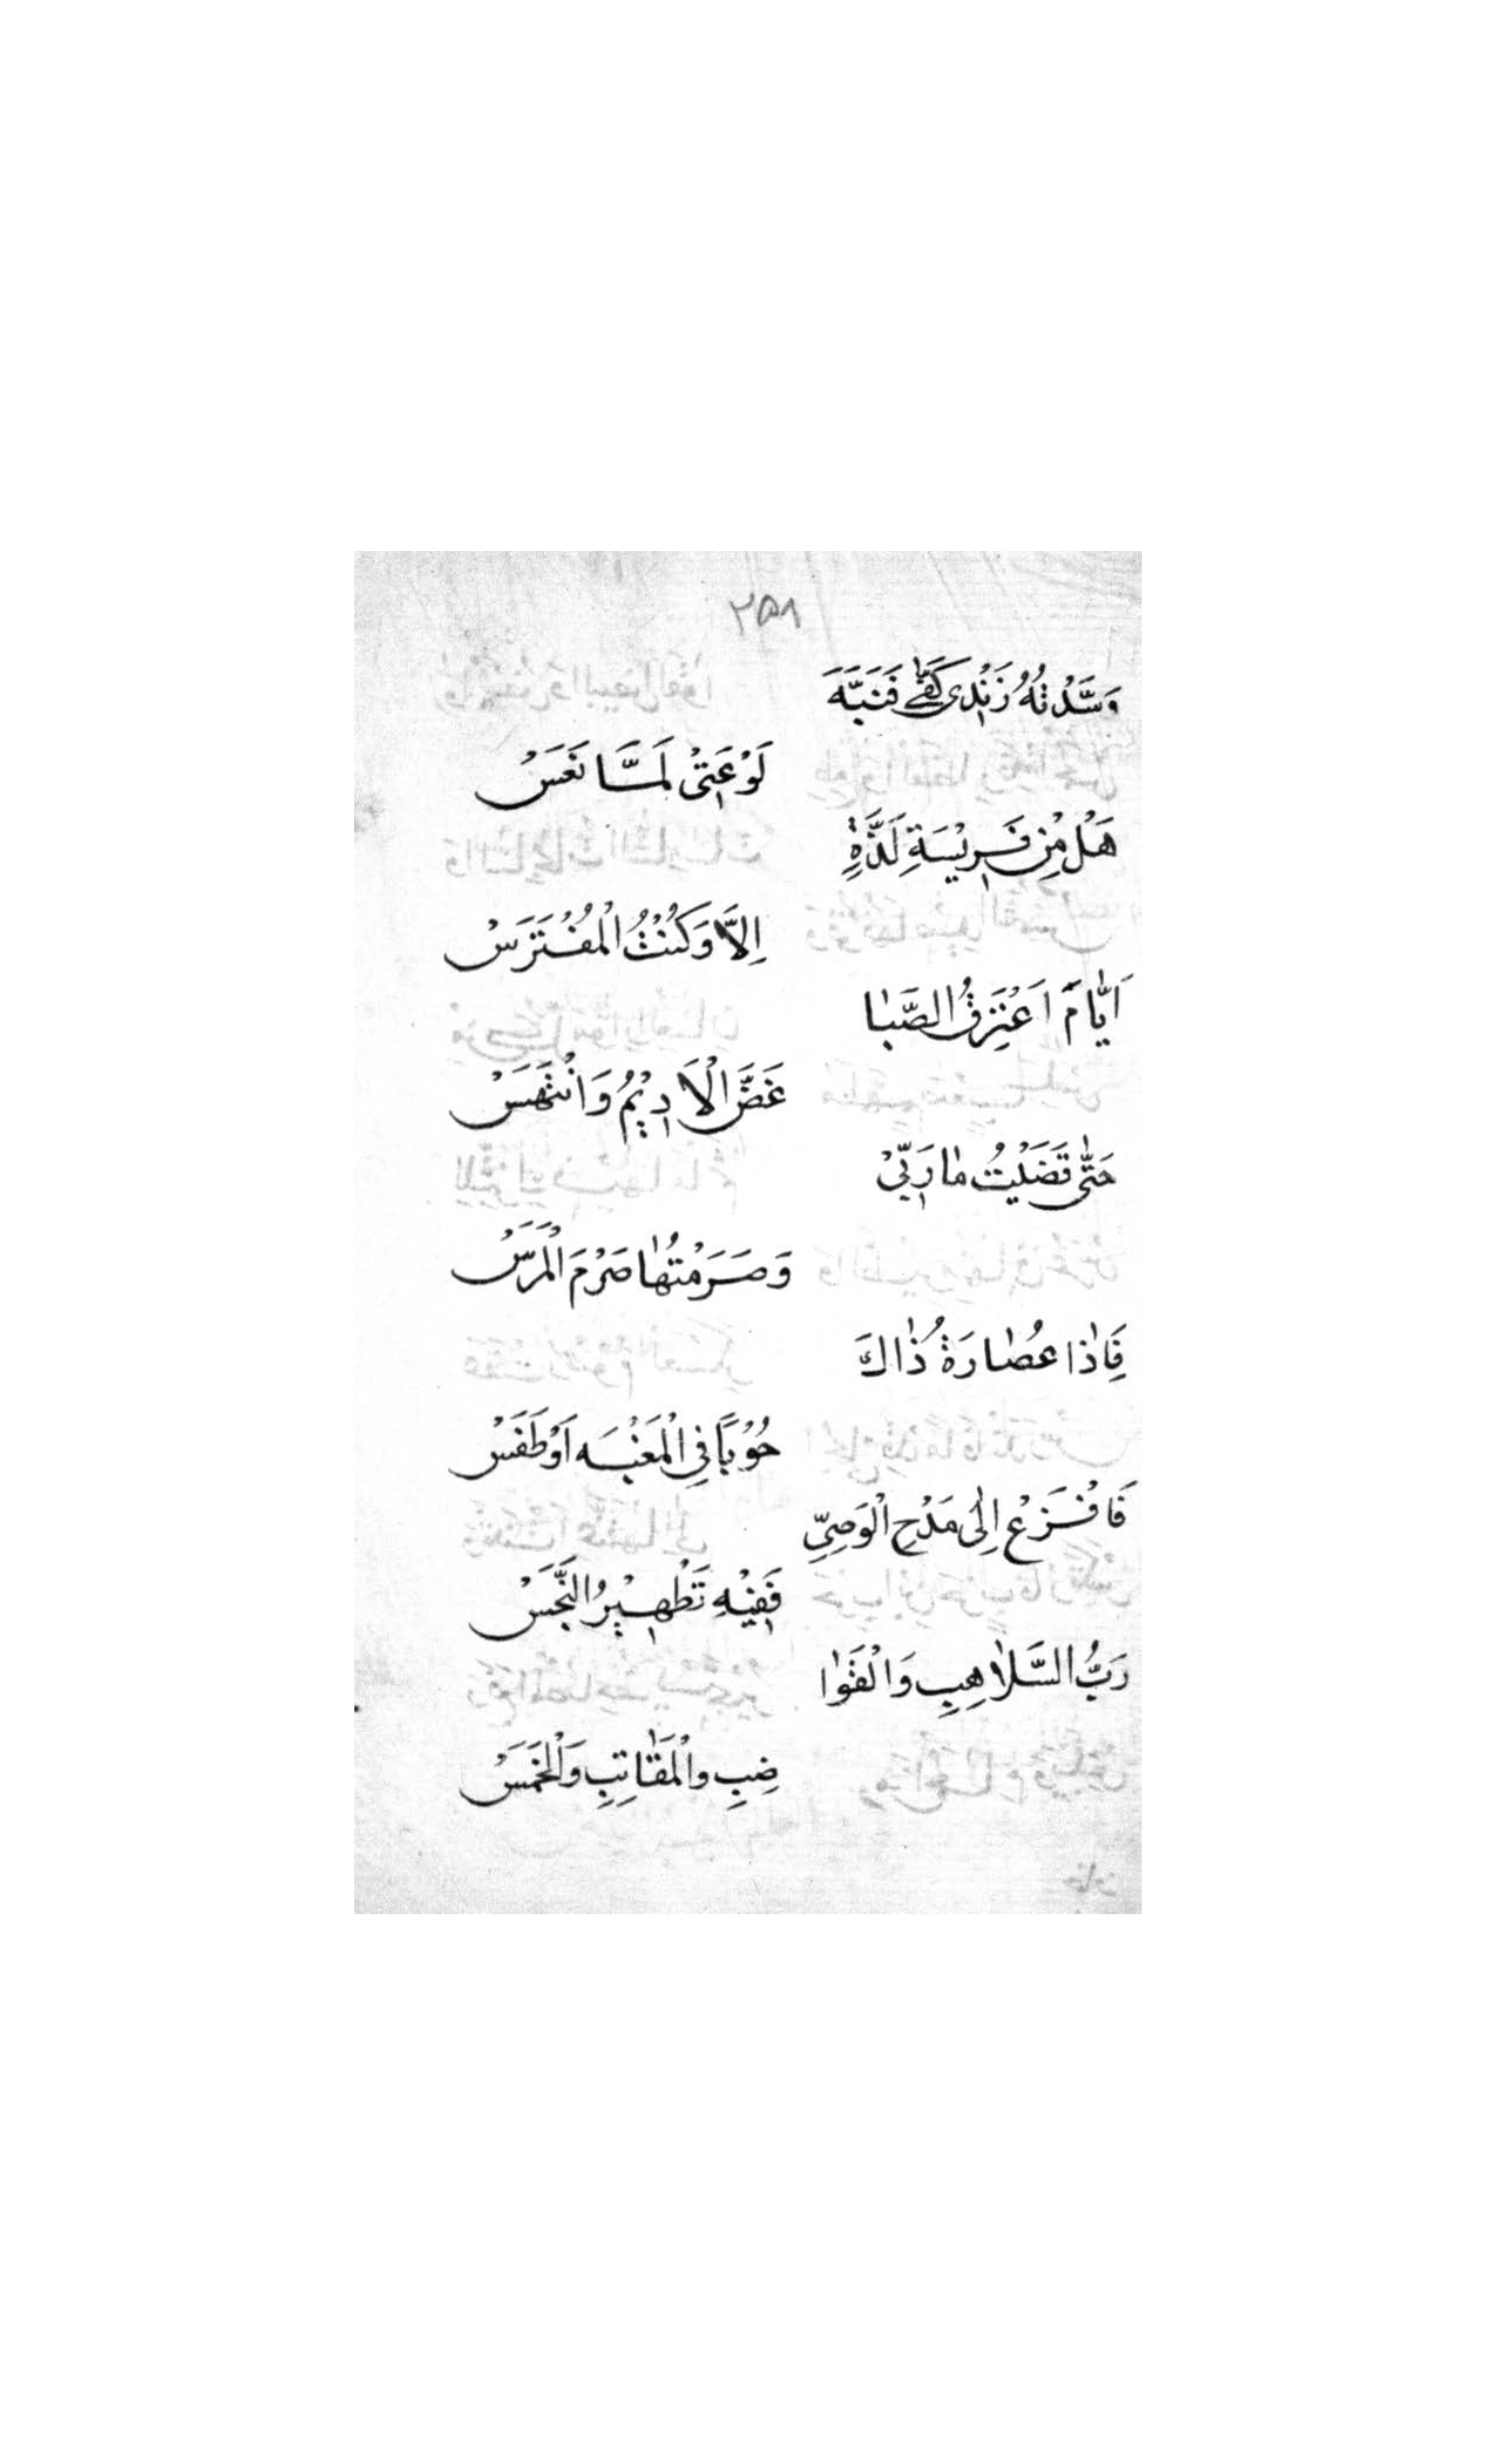 ٢٥٨
وَسَّدْتُهُ زَنْدِی كَفَّیْ فَنَبَّهَ
لَوْعَتِیْ لَمَّا نَعَسْ
هَلْ مِنْ فَرِیْسَةِ لَذَّةٍ
اِلَّا وَكُنْتُ الْمُفْتَرَسْ
اَیَّامَ اَعْتَرِفُ الصَّبٰا
غَضَّ الْاَدِیْمُ وَانْتَهَسْ
حَتّٰی قَضَیْتُ مٰارَبِیْ
وَصَرَمْتُهٰا صَرْمَ الْمَرَسْ
فَاِذٰا عُصٰارَةُ ذٰاكَ
حُوْبًا فِی الْمَغَبَّه اَوْطَفَسْ
فَافْزَعْ اِلٰی مَدْحِ الْوَصِیِّ
فَفِیْهِ تَطْهِیْرُ النَّجَسْ
رَبُّ السَّلٰاهِبِ وَالْقَوٰا
ضِبِ وَالْمَقٰانِبِ وَالْخَمَسْ